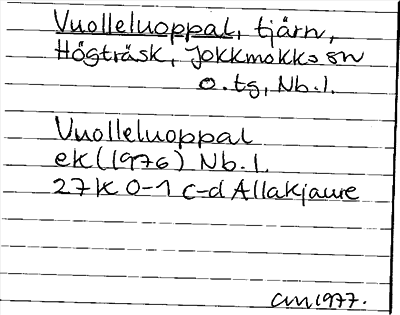 Vuolleluoppal, tjärn,
Högträsk, Jokkmokks sn
o. tg, Nb. l.
Vuolleluoppal
ek (1976) Nb. l.
27K 0-1 c-d Allakjaure
CM 1977.